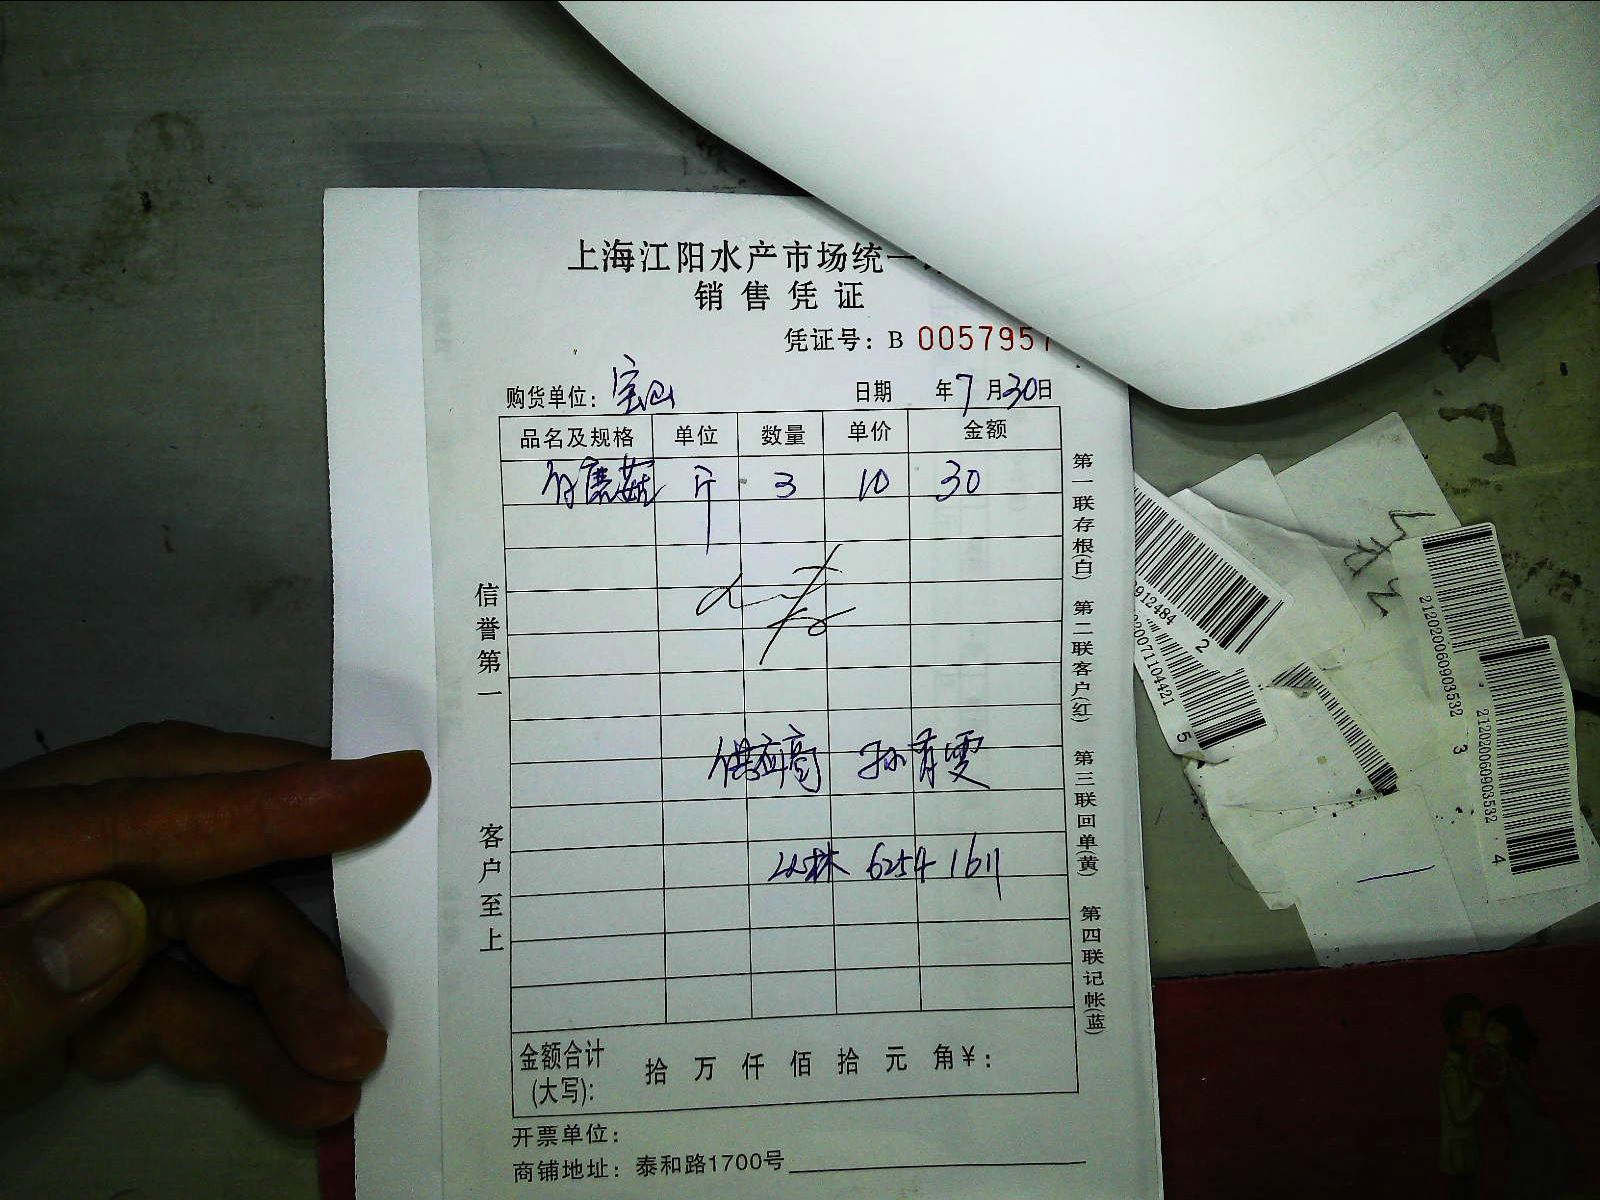 上海江阳水产市场统一
销售凭证
凭证号：B 0057957
购货单位：宝山 日期 年7月30日
品名及规格 单位 数量 单价 金额
蘑菇 斤 3 10 30
供应商 孙育雯
丛林 6254 1611
金额合计(大写)： 拾 万 仟 佰 拾 元 角 ¥：
开票单位：
商铺地址：泰和路1700号
信誉第一 客户至上
第一联存根(白) 第二联客户(红) 第三联回单(黄) 第四联记帐(蓝)
912484
2
20071104421
5
212020060903532
3
212020060903532
4